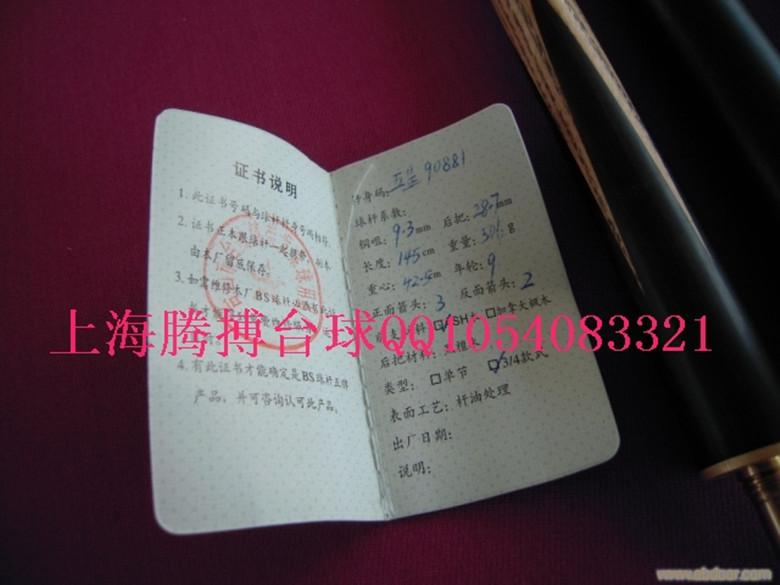 证书说明
1. 此证书号码与球杆杆身号码相符。
2. 证书正本跟球杆一起携带，副本
由本厂留底保存。
3. 如需维修本厂BS球杆
4. 有此证书才能确定是BS球杆五锋
产品，并可咨询认可此产品。
杆身码：90881
球杆系数：
铜咀：9.3mm 后把：28.7mm
长度：145cm 重量：g
重心：42.5cm 年轮：9
正面箭头：3 反面箭头：2
料：ASH 加拿大枫木
后把材料：
类型：单节 3/4款式
表面工艺：杆油处理
出厂日期：
说明：
上海腾搏台球QQ1054083321